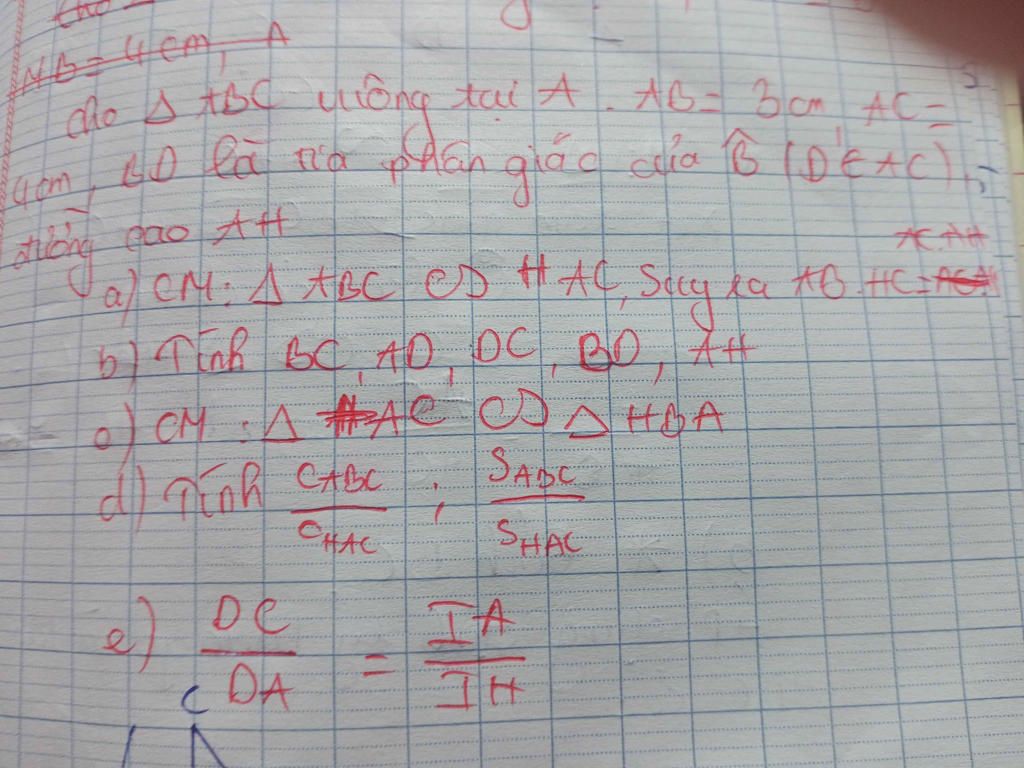 cho
MB = 4 cm, A
cho Δ ABC vuông tại A. AB = 3cm, AC =
4cm, BD là tia phân giác của B̂ (D ∈ AC),
đường cao AH
AC.AH
a) CM: Δ ABC ∽ HAC, Suy ra AB.HC =
b) Tính BC, AD, DC, BD, AH
c) CM: Δ HAC ∽ Δ HBA
d) Tính C_ABC / C_HAC ; S_ABC / S_HAC
e) DC / DA = IA / IH
C